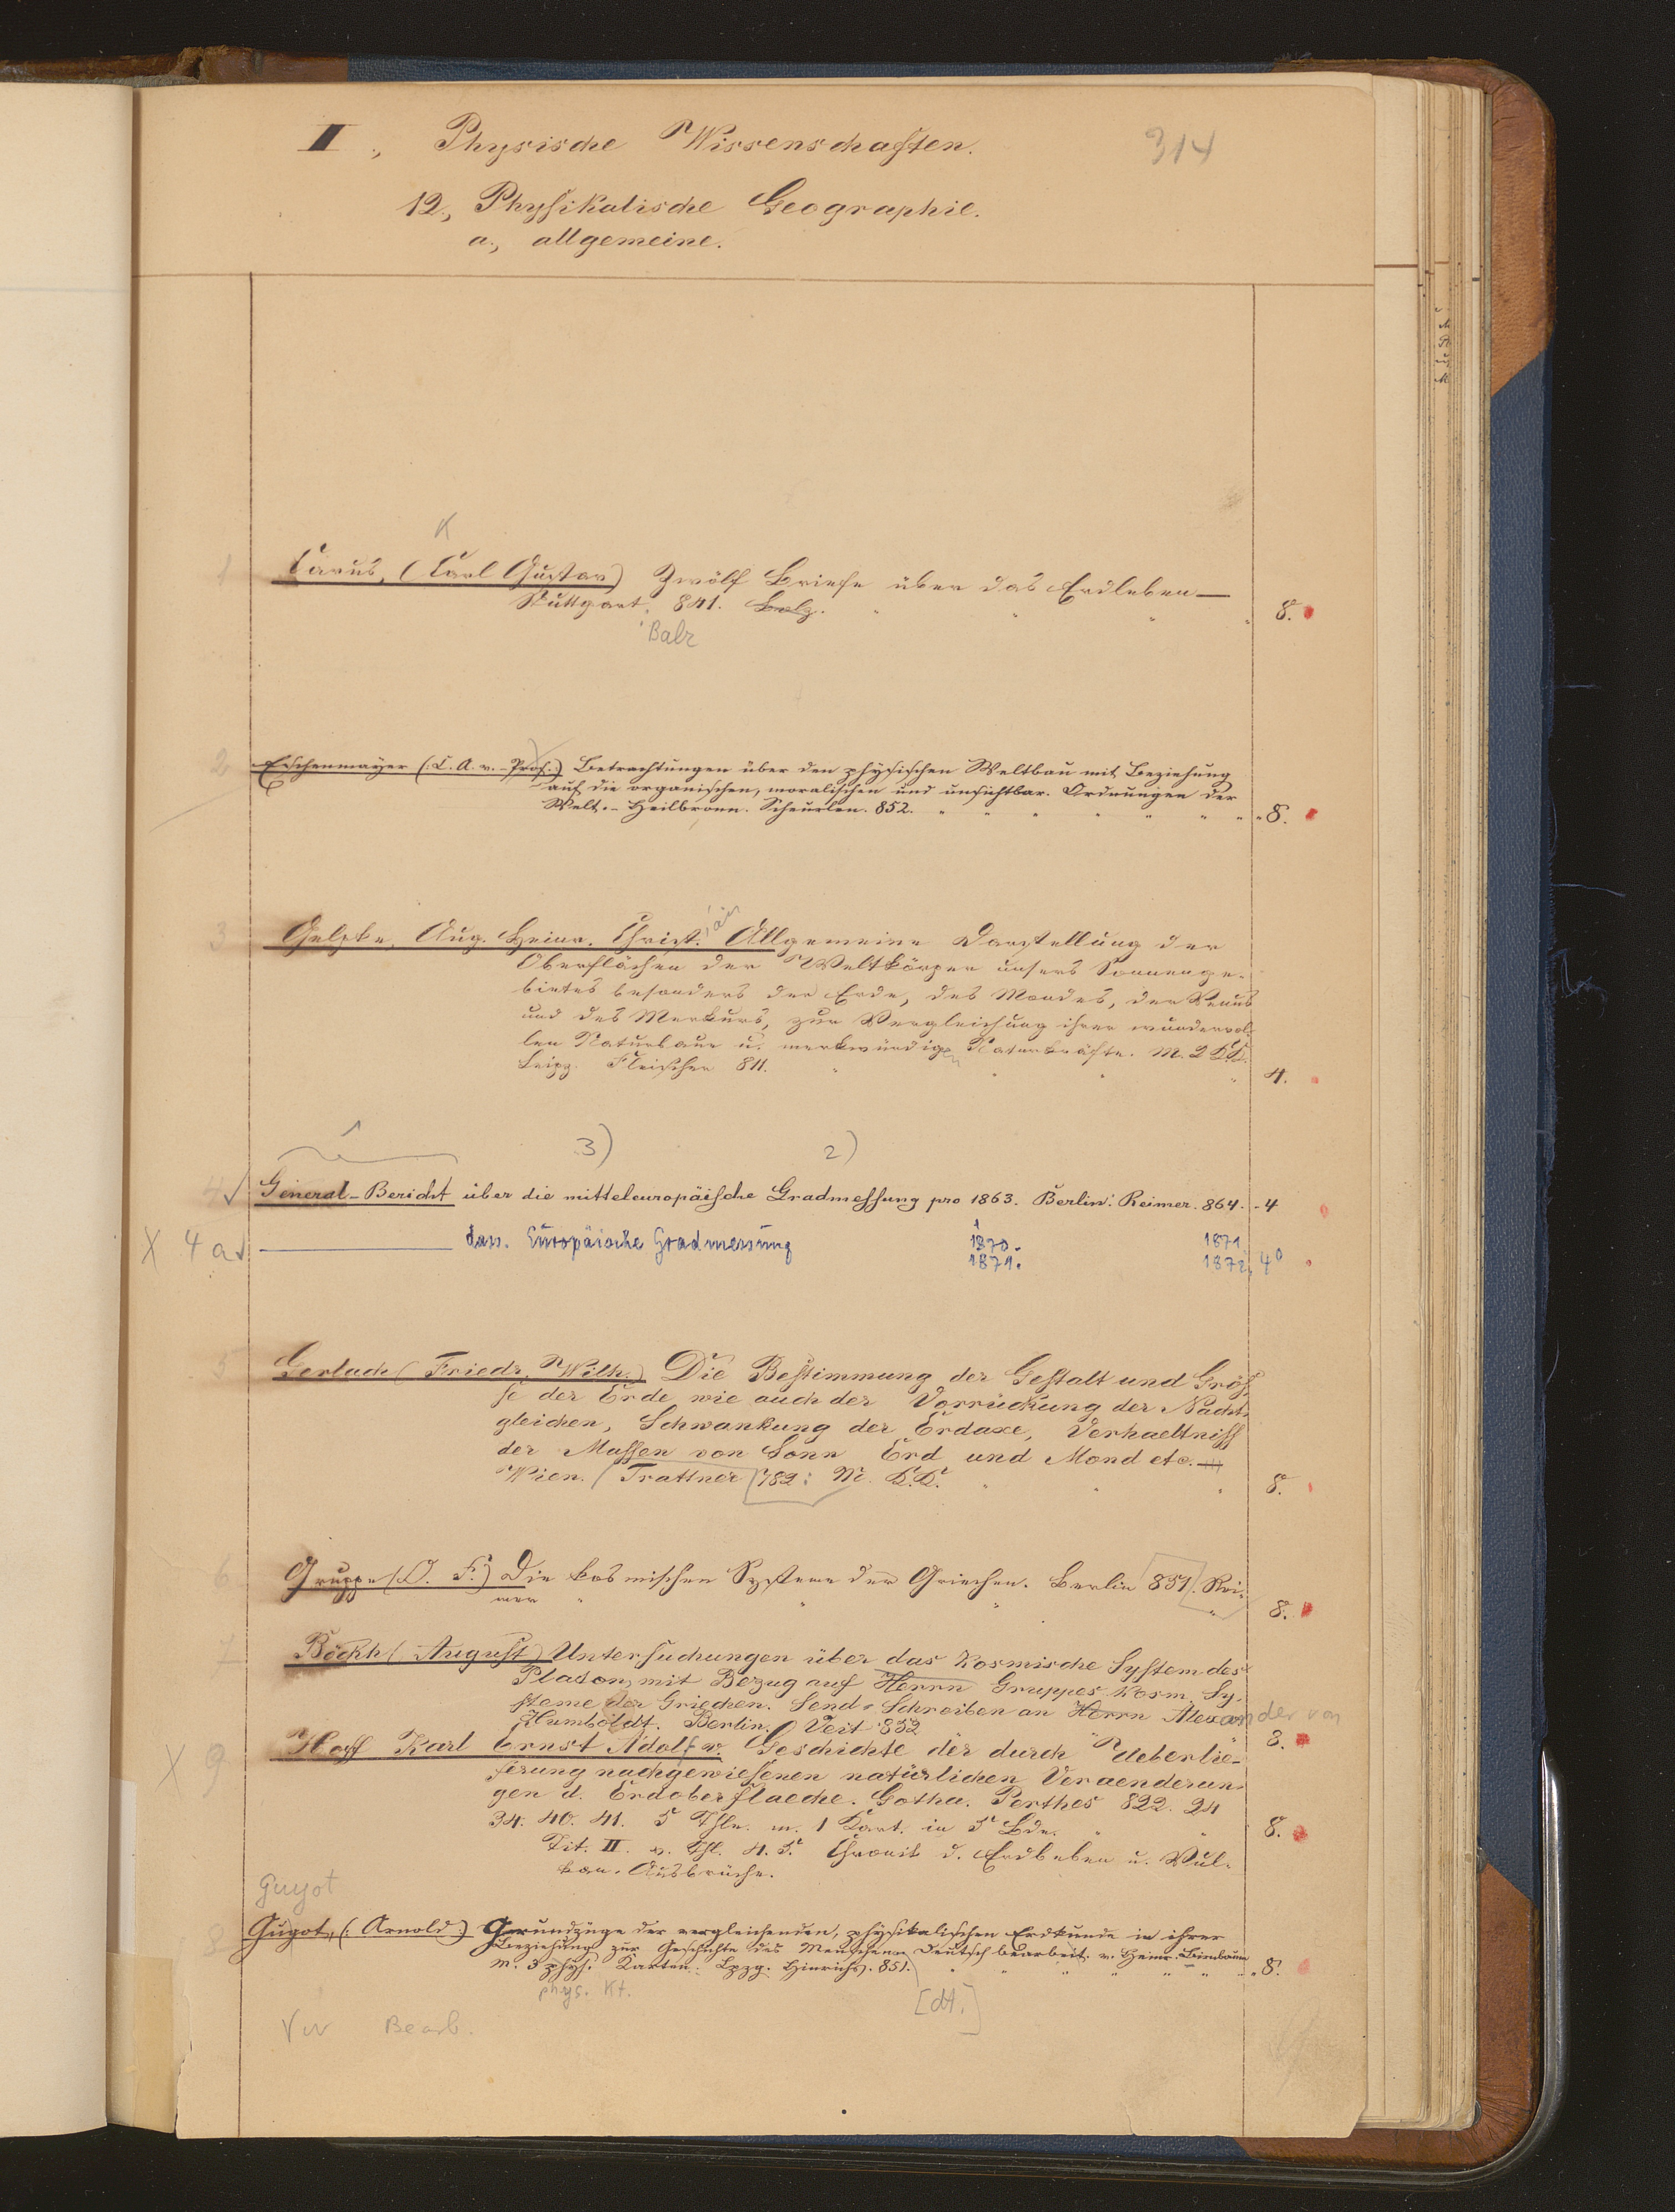 II., Physische Wissenschaften.
314
12., Physikalische Geographie.
a., allgemeine.
K
1 Carus, (Carl Gustav) Zwölf Briefe über das Erdleben —
Stuttgart. 841. Balz. 8.
Balz
2 Eschenmayer (: C. A. v. - Prof.) Betrachtungen über den physischen Weltbau mit Beziehung
auf die organischen, moralischen und unsichtbar. Ordnungen der
Welt. - Heilbronn. Scheurlen. 852. 8.
ian
3 Gelpke, Aug. Heinr. Christ. Allgemeine Darstellung der
Oberflächen der Weltkörper unsers Sonnenge-
bietes besonders der Erde, des Mondes, der Venus
und des Merkurs, zur Vergleichung ihrer wundervol-
len Naturbaue u. merkwürdigen Naturkräfte. M. 2 K.K.
Leipz. Fleischer 811. 4.
1 3) 2)
4 General-Bericht über die mitteleuropäische Gradmessung pro 1863. Berlin: Reimer. 864. - 4
X 4a dass. Europäische Gradmessung 1870. 1871
1871. 1872, 4°
5 Gerlach (Friedr. Wilh.) Die Bestimmung der Gestalt und Grös-
se der Erde wie auch der Vorrückung der Nacht-
gleichen, Schwankung der Erdaxe, Verhaeltniss
der Massen von Sonn Erd und Mond etc. —
Wien. (Trattner) 782: M. K.K. 8.
6 Gruppe (O. F.) Die kosmischen Systeme der Griechen. Berlin 851. Rei-
mer 8.
7 Böckh (August) Untersuchungen über das kosmische System des
Platon, mit Bezug auf Herrn Gruppes kosm. Sy-
steme der Griechen. Send-Schreiben an Herrn Alexander von
Humboldt. Berlin. Veit 852 8.
X 9 Hoff Karl Ernst Adolf v. Geschichte der durch Ueberlie-
ferung nachgewiesenen natürlichen Veraenderun-
gen d. Erdoberflaeche. Gotha. Perthes 822. 24
34. 40. 41. 5 Thle. m. 1 Kart. in 5 Bde. 8.
Tit. II. v. Thl. 4. 5. Chronik d. Erdbeben u. Vul-
kan. Ausbrüche.
Guyot
8 Gugot, (: Arnold :) Grundzüge der vergleichenden, physikalischen Erdkunde in ihrer
Beziehung zur Geschichte des Menschen. Deutsch bearbeit. v. Heinr. Birnbaum
M. 3 phys. Karten. Lpzg. Hinrichs. 851. 8.
phys. Kt. [dt.]
Vw Bearb.